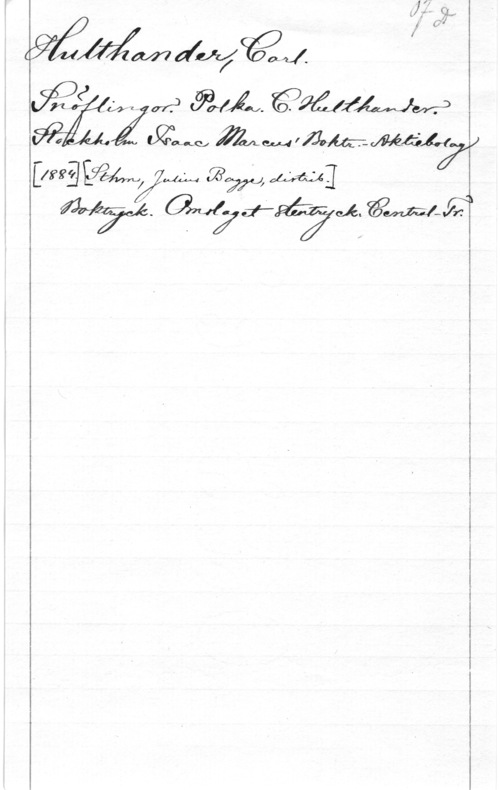 Hulthander, Carl.
Snöflingor. Polka. C. Hulthander.
Stockholm Isaac Marcus' Boktr.-Aktiebolag
[1889] [Sthm, Julius Bagge, distrib.]
Boktryck. Omslaget stentryck. Central-Tr.